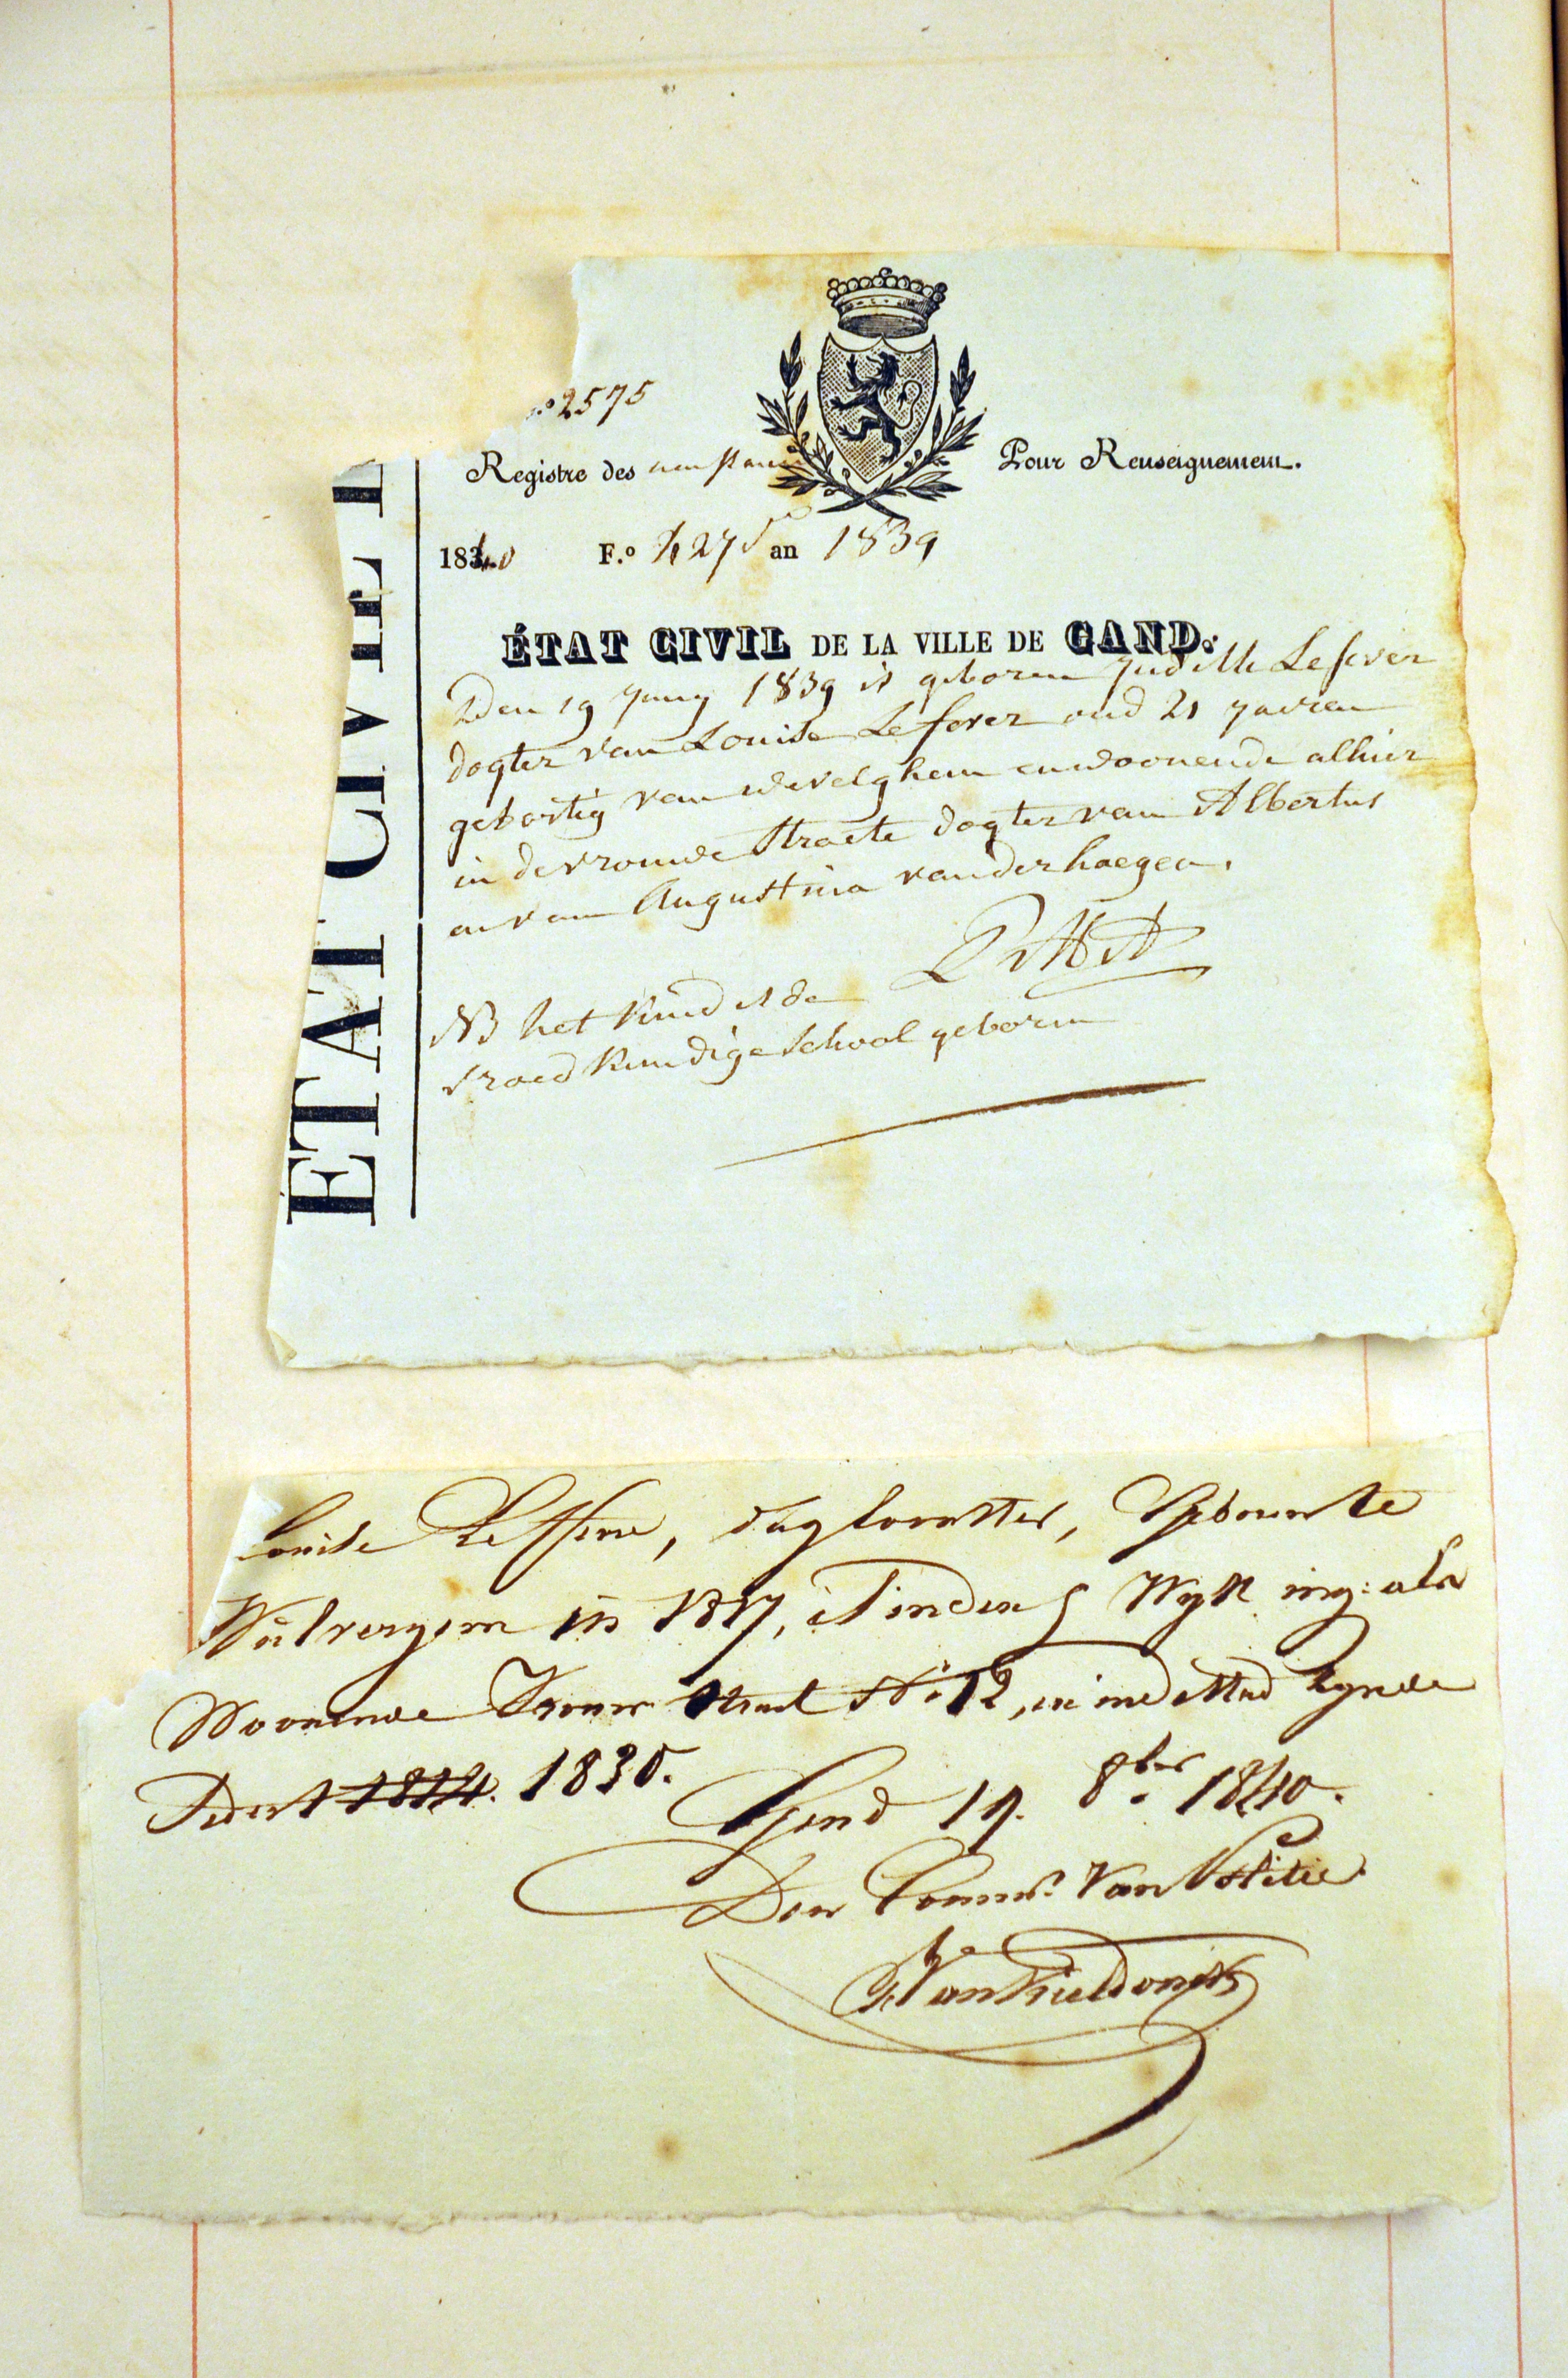 N.º 2575
Registre des naissances
Pour Renseignement.
1840 F.º 427 an 1839
ÉTAT CIVIL
ÉTAT CIVIL DE LA VILLE DE GAND.
Den 19 Juny 1839 is geboren Judith Lefever
dogter van Louise Lefever oud 21 jaeren
gebortig van Wevelghem en woonende alhier
in de vrouwe straete dogter van Albertus
en van Augustina vanderhaegen.
NB het kind is de
vroedkundige school geboren
Louise Leffever, dagloonster, Geboorte
Wulvergem in 1817, is in den 5 Wyk ing: als
Woonende Vrouw Straet Nº 12, in ende Stad zynde
Sedert 1824. 1830.
Gend 19. 8ber 1840.
Den Commis. Van Politie